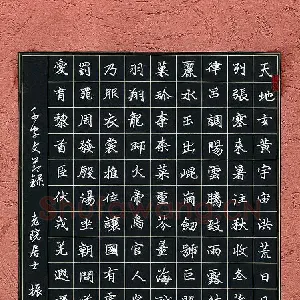 天地玄黃宇宙洪荒日月
列張寒來暑往秋收冬藏
律呂調陽雲騰致雨露結
麗水玉出崑岡劍號巨闕
菓珍李柰菜重芥薑海鹹
羽翔龍師火帝鳥官人皇
乃服衣裳推位讓國有虞
罰罪周發殷湯坐朝問道
愛育黎首臣伏戎羌遐邇
千字文節錄 老院居士 振